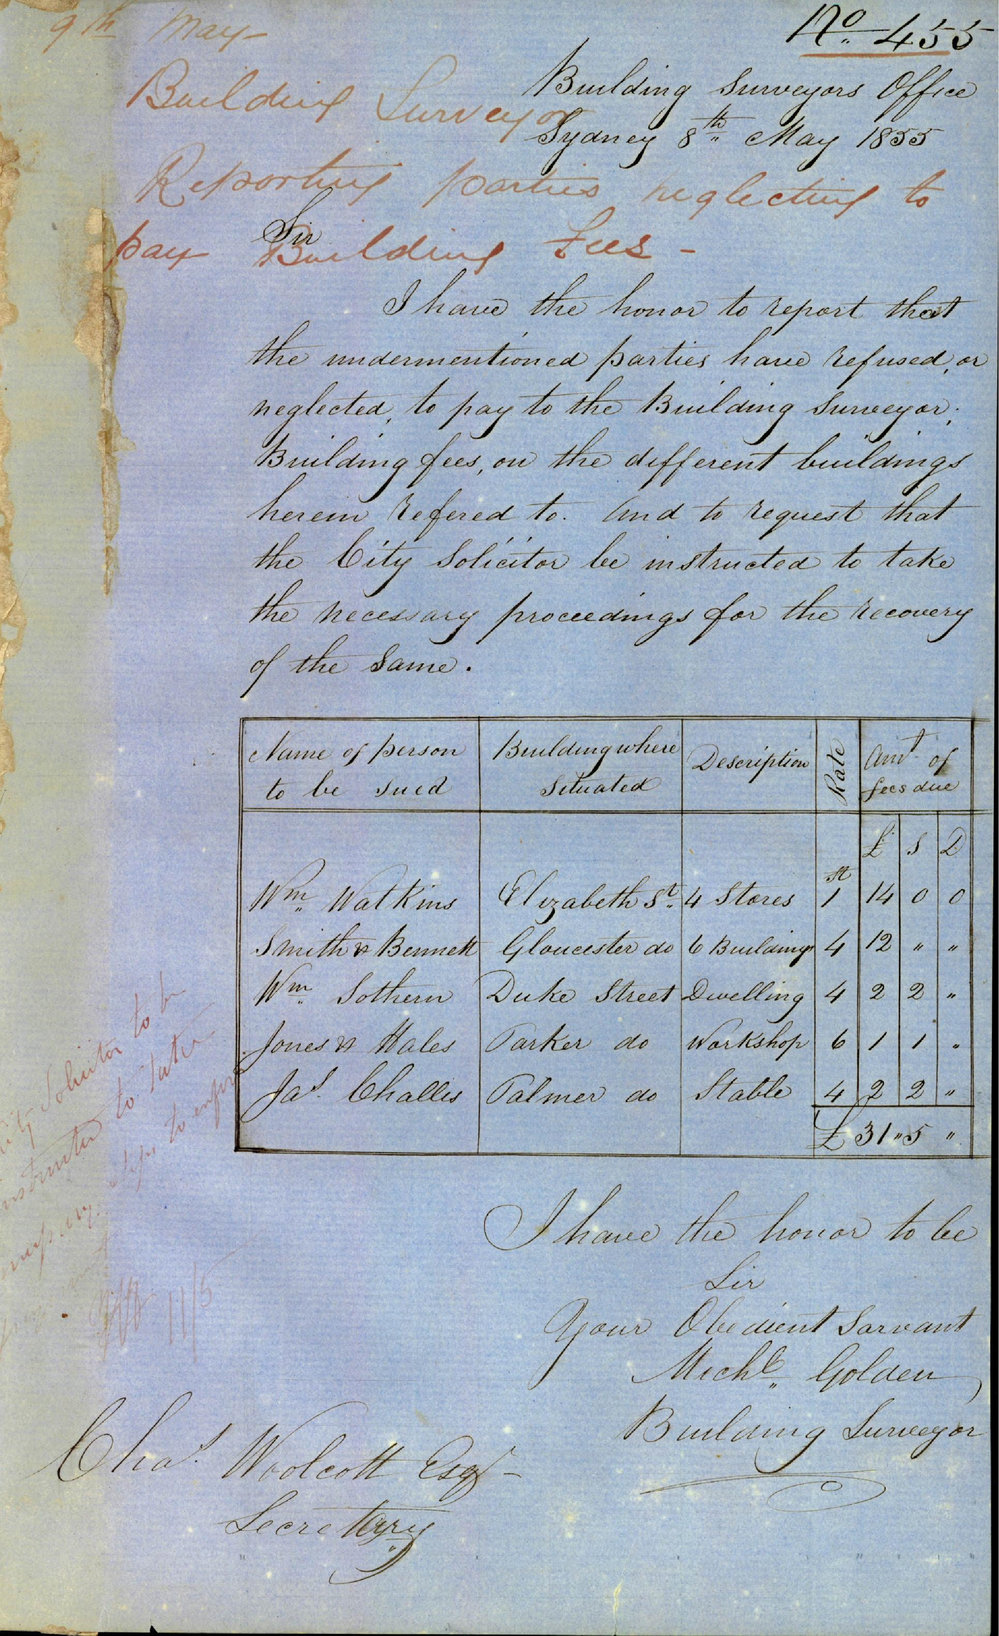 9th May -
No. 455
Building Surveyors Office
Sydney 8th May 1855
Building Surveyor
Reporting parties neglecting to
pay Building Fees -
Sir
I have the honor to report that
the undermentioned parties have refused, or
neglected, to pay to the Building Surveyor,
Building fees, on the different buildings
herein refered to. And to request that
the City Solicitor be instructed to take
the necessary proceedings for the recovery
of the same.
Name of person to be sued | Building where situated | Description | Rate | Amt. of fees due
£ S D
Wm. Watkins | Elizabeth St. | 4 Stores | 1st | 14 0 0
Smith & Bennett | Gloucester do | 6 Buildings | 4 | 12 " "
Wm. Sothern | Duke Street | Dwelling | 4 | 2 2 "
Jones & Hales | Parker do | Workshop | 6 | 1 1 "
Jas. Challis | Palmer do | Stable | 4 | 2 2 "
£31 " 5 "
City Solicitor to be
instructed to take
steps to enforce
11/5
I have the honor to be
Sir
Your Obedient Sarvant
Michl. Golden
Building Surveyor
Chas. Woolcott Esqr -
Secretary